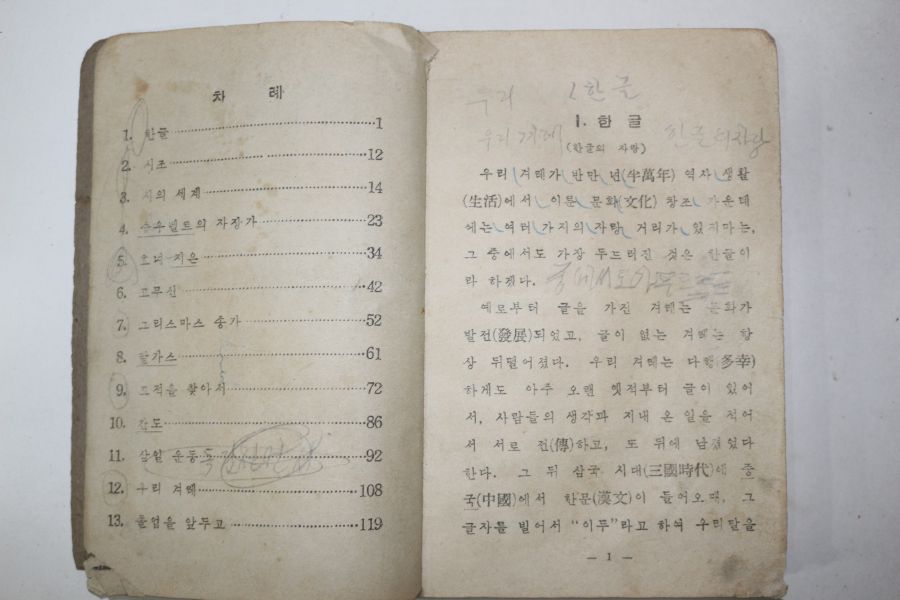 차 례
1. 한글 1
2. 시조 12
3. 시의 세계 14
4. 슈우벨트의 자장가 23
5. 지은 34
6. 고무신 42
7. 크리스마스 송가 52
8. 팔가스 61
9. 고적을 찾아서 72
10. 간도 86
11. 삼일 운동 92
12. 우리 겨레 108
13. 졸업을 앞두고 119
우리 한글
1. 한 글
우리 겨레 한글의 자랑
(한글의 자랑)
우리 겨레가 반만 년(半萬年) 역사 생활
(生活)에서 이룬 문화(文化) 창조 가운데
에는 여러 가지의 자랑 거리가 있지마는,
그 중에서도 가장 두드러진 것은 한글이
라 하겠다. 중에서도
예로부터 글을 가진 겨레는 문화가
발전(發展)되었고, 글이 없는 겨레는 항
상 뒤떨어졌다. 우리 겨레는 다행(多幸)
하게도 아주 오랜 옛적부터 글이 있어
서, 사람들의 생각과 지내 온 일을 적어
서 서로 전(傳)하고, 또 뒤에 남겼었다
한다. 그 뒤 삼국 시대(三國時代)에 중
국(中國)에서 한문(漢文)이 들어오매, 그
글자를 빌어서 "이두"라고 하여 우리말을
— 1 —